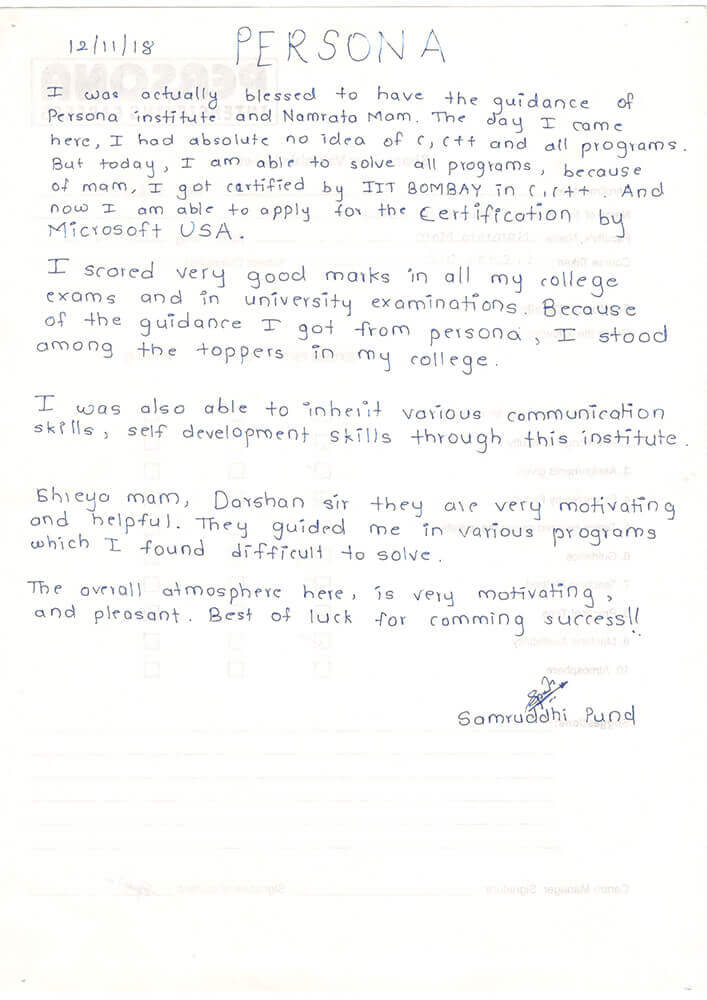 12/11/18
PERSONA
I was actually blessed to have the guidance of
Persona institute and Namrata Mam. The day I came
here, I had absolute no idea of C, C++ and all programs.
But today, I am able to solve all programs, because
of mam, I got certified by IIT BOMBAY in C, C++. And
now I am able to apply for the Certification by
Microsoft USA.
I scored very good marks in all my college
exams and in university examinations. Because
of the guidance I got from persona, I stood
among the toppers in my college.
I was also able to inherit various communication
skills, self development skills through this institute.
Shreya mam, Darshan sir they are very motivating
and helpful. They guided me in various programs
which I found difficult to solve.
The overall atmosphere here, is very motivating,
and pleasant. Best of luck for comming success!!
Samruddhi Pund